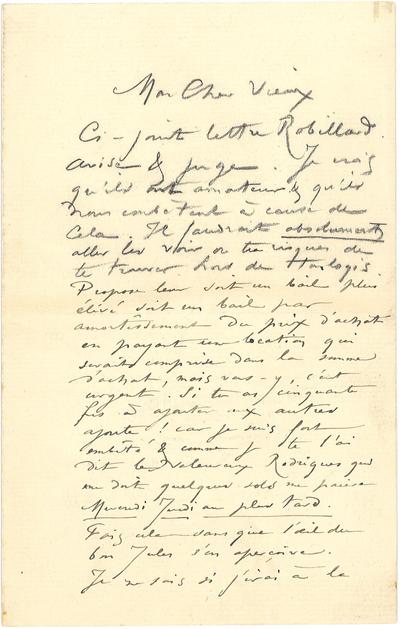 Mon Cher Vieux
Ci-joint lettre Robillard.
avise & juge. Je crois
qu'ils ont amateur & qu'ils
nous embêtent à cause de
cela. Il faudrait absolument
aller les voir ou tu risques de
te trouver hors de Horlogis.
Propose leur soit un bail plus
élevé soit un bail par
amortissement du prix d'achat
en payant une location qui
serait comprise dans la somme
d'achat, mais vas-y, c'est
urgent. Si tu as cinquante
frs à ajouter aux autres
ajoute ! car je suis fort
embêté & comme je te l'ai
dit le valeureux Rodrigues qui
me doit quelques sols me paiera
Mercredi Jeudi au plus tard.
Fais cela sans que l'œil du
bon Jules s'en aperçoive.
Je ne sais si j'irai à la